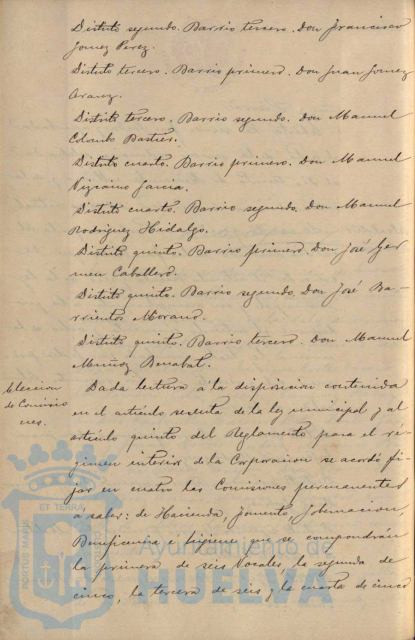 Distrito segundo. Barrio tercero. Don Francisco
Gomez Perez.
Distrito tercero. Barrio primero. Don Juan Gomez
Aranz.
Distrito tercero. Barrio segundo. Don Manuel
Colombo Bastier.
Distrito cuarto. Barrio primero. Don Manuel
Vizcaino Garcia.
Distrito cuarto. Barrio segundo. Don Manuel
Rodriguez Hidalgo.
Distrito quinto. Barrio primero. Don José Ger
men Caballero.
Distrito quinto. Barrio segundo. Don José Ba-
rrientos Morano.
Distrito quinto. Barrio tercero. Don Manuel
Muñoz Benabat.
Eleccion
de Comisio
nes.
Dada lectura á la disposicion contenida
en el artículo sesenta de la ley municipal y al
artículo quinto del Reglamento para el ré-
gimen interior de la Corporacion se acordó fi-
jar en cuatro las Comisiones permanentes
á saber: de Hacienda, Fomento, Gobernacion,
Beneficencia é higiene que se compondrán
la primera de seis Vocales, la segunda de
cinco, la tercera de seis y la cuarta de cinco
PORTUS MARIS
ET TERRAE
Ayuntamiento de
HUELVA